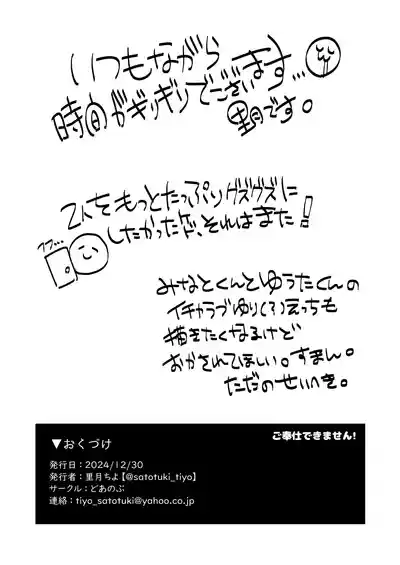 いつもながら
時間がギリギリでございます…
里月です。
2人をもっとたっぷりグズグズに
したかったけど、それはまた!
みなとくんとゆうたくんの
イチャラブゆり(?)えっちも
描きたくなるけど
おかされてほしい。すまん。
ただのせいへき。
ご奉仕できません!
▼おくづけ
発行日：2024/12/30
発行者：里月ちよ【@satotuki_tiyo】
サークル：どあのぶ
連絡：tiyo_satotuki@yahoo.co.jp